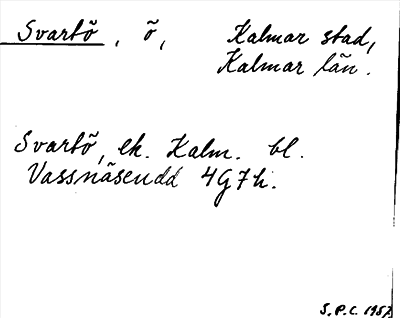 Svartö, ö, Kalmar stad,
Kalmar län.
Svartö, ek. Kalm. bl.
Vassnäsudd 4G7h.
S.P.C. 1957